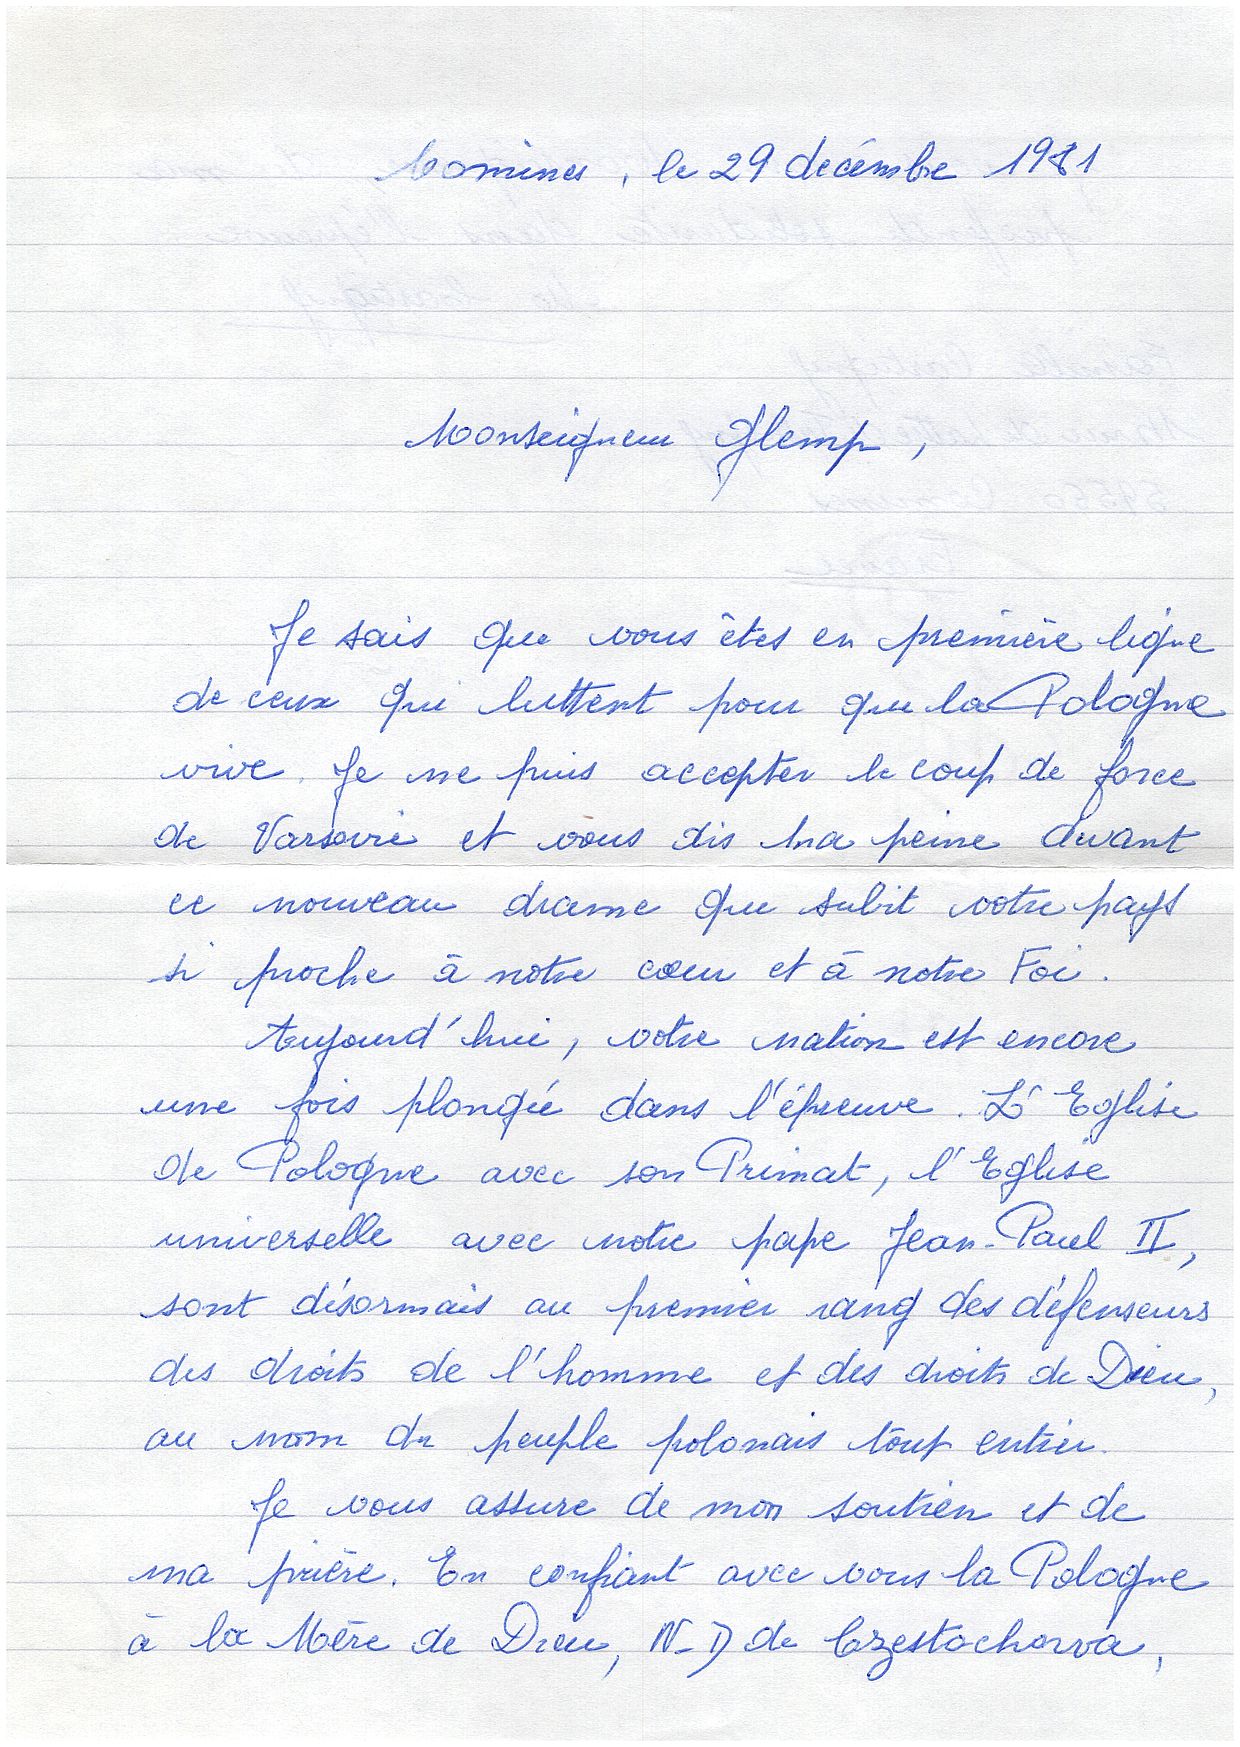 Comines, le 29 decémbre 1981
Monseigneur Glemp,
Je sais que vous êtes en première ligne
de ceux qui luttent pour que la Pologne
vive. Je ne puis accepter le coup de force
de Varsovie et vous dis ma peine devant
ce nouveau drame que subit votre pays
si proche à notre cœur et à notre Foi.
Aujourd'hui, votre nation est encore
une fois plongée dans l'épreuve. L'Eglise
de Pologne avec son Primat, l'Eglise
universelle avec notre pape Jean-Paul II,
sont désormais au premier rang des défenseurs
des droits de l'homme et des droits de Dieu,
au nom du peuple polonais tout entier.
Je vous assure de mon soutien et de
ma prière. En confiant avec vous la Pologne
à la Mère de Dieu, N-D de Czestochorva,